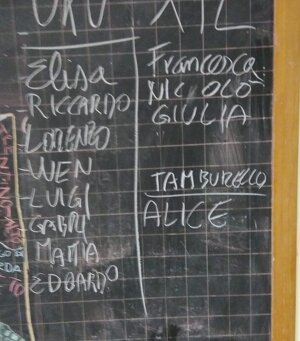 XIL
Elisa
RICCARDO
LORENZO
WEN
LUIGI
GABRI
MATTIA
EDOARDO
Francesca
NICCOLÒ
GIULIA
TAMBURELLO
ALICE